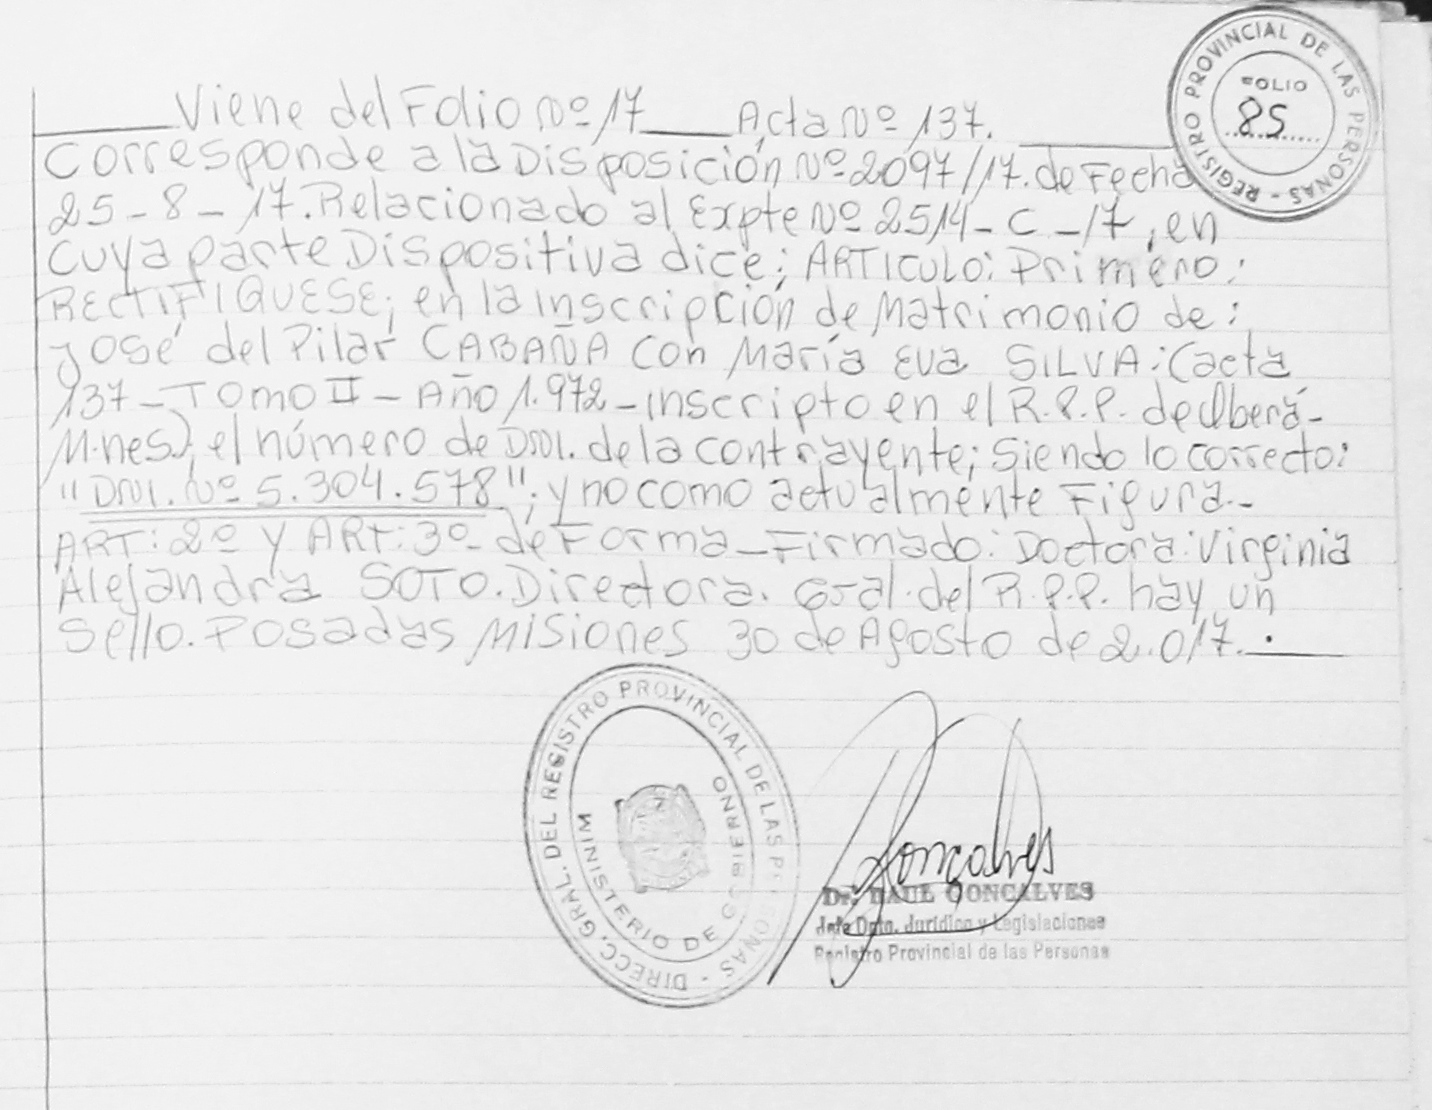 REGISTRO PROVINCIAL DE LAS PERSONAS -
FOLIO
85
Viene del Folio Nº 17 Acta Nº 137.
Corresponde a la Disposición Nº 2097/17. de Fecha
25-8-17. Relacionado al Expte Nº 2514-C-17, en
Cuya parte Dispositiva dice; ARTICULO: Primero:
RECTIFIQUESE; en la inscripción de Matrimonio de:
José del Pilar CABAÑA con María Eva SILVA: (acta
137 - Tomo II - Año 1.972 - inscripto en el R.P.P. de Oberá -
M.nes), el número de DNI. de la contrayente; Siendo lo correcto:
"DNI. Nº 5.304.578"; y no como actualmente Figura.-
ART: 2º y ART: 3º de Forma - Firmado: Doctora: Virginia
Alejandra SOTO. Directora. Gral. del R.P.P. hay un
Sello. Posadas Misiones 30 de Agosto de 2.017.
DIRECC. GRAL. DEL REGISTRO PROVINCIAL DE LAS PERSONAS -
MINISTERIO DE GOBIERNO
Goncalves
Dr. RAUL GONCALVES
Jefe Dpto. Jurídico y Legislaciones
Registro Provincial de las Personas